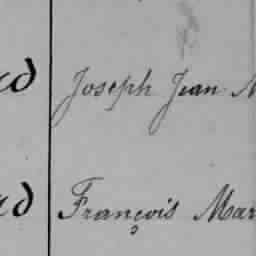 Joseph Jean
François Mar